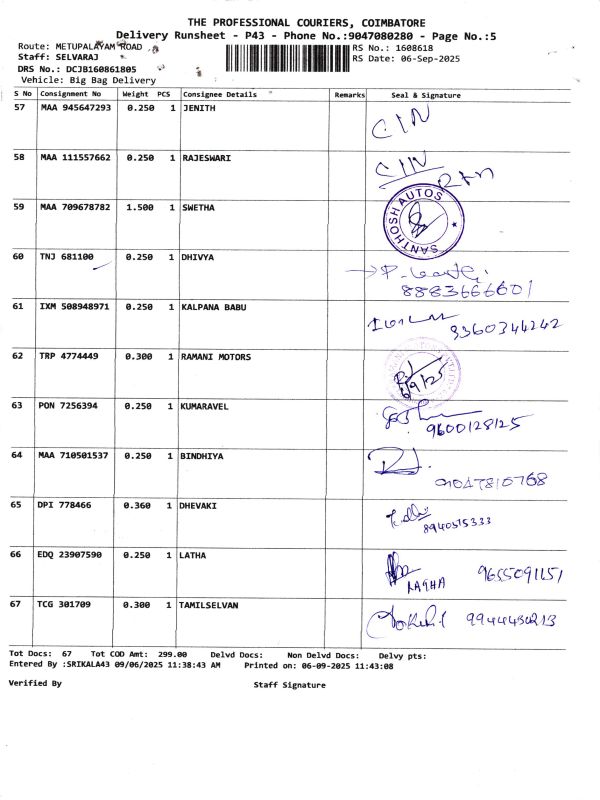 THE PROFESSIONAL COURIERS, COIMBATORE
Delivery Runsheet - P43 - Phone No.:9047080280 - Page No.:5
Route: METUPALAYAM ROAD
RS No.: 1608618
Staff: SELVARAJ
RS Date: 06-Sep-2025
DRS No.: DCJB160861805
Vehicle: Big Bag Delivery
S No Consignment No Weight PCS Consignee Details Remarks Seal & Signature
57 MAA 945647293 0.250 1 JENITH
58 MAA 111557662 0.250 1 RAJESWARI
59 MAA 709678782 1.500 1 SWETHA
SANTHOSH AUTOS
60 TNJ 681100 0.250 1 DHIVYA
8883666601
61 IXM 508948971 0.250 1 KALPANA BABU
9360344242
62 TRP 4774449 0.300 1 RAMANI MOTORS
6/9/25
63 PON 7256394 0.250 1 KUMARAVEL
9600128125
64 MAA 710501537 0.250 1 BINDHIYA
9047810768
65 DPI 778466 0.360 1 DHEVAKI
8940515333
66 EDQ 23907590 0.250 1 LATHA
9655091151
67 TCG 301709 0.300 1 TAMILSELVAN
Tot Docs: 67 Tot COD Amt: 299.00 Delvd Docs: Non Delvd Docs: Delvy pts:
Entered By :SRIKALA43 09/06/2025 11:38:43 AM Printed on: 06-09-2025 11:43:08
Verified By Staff Signature